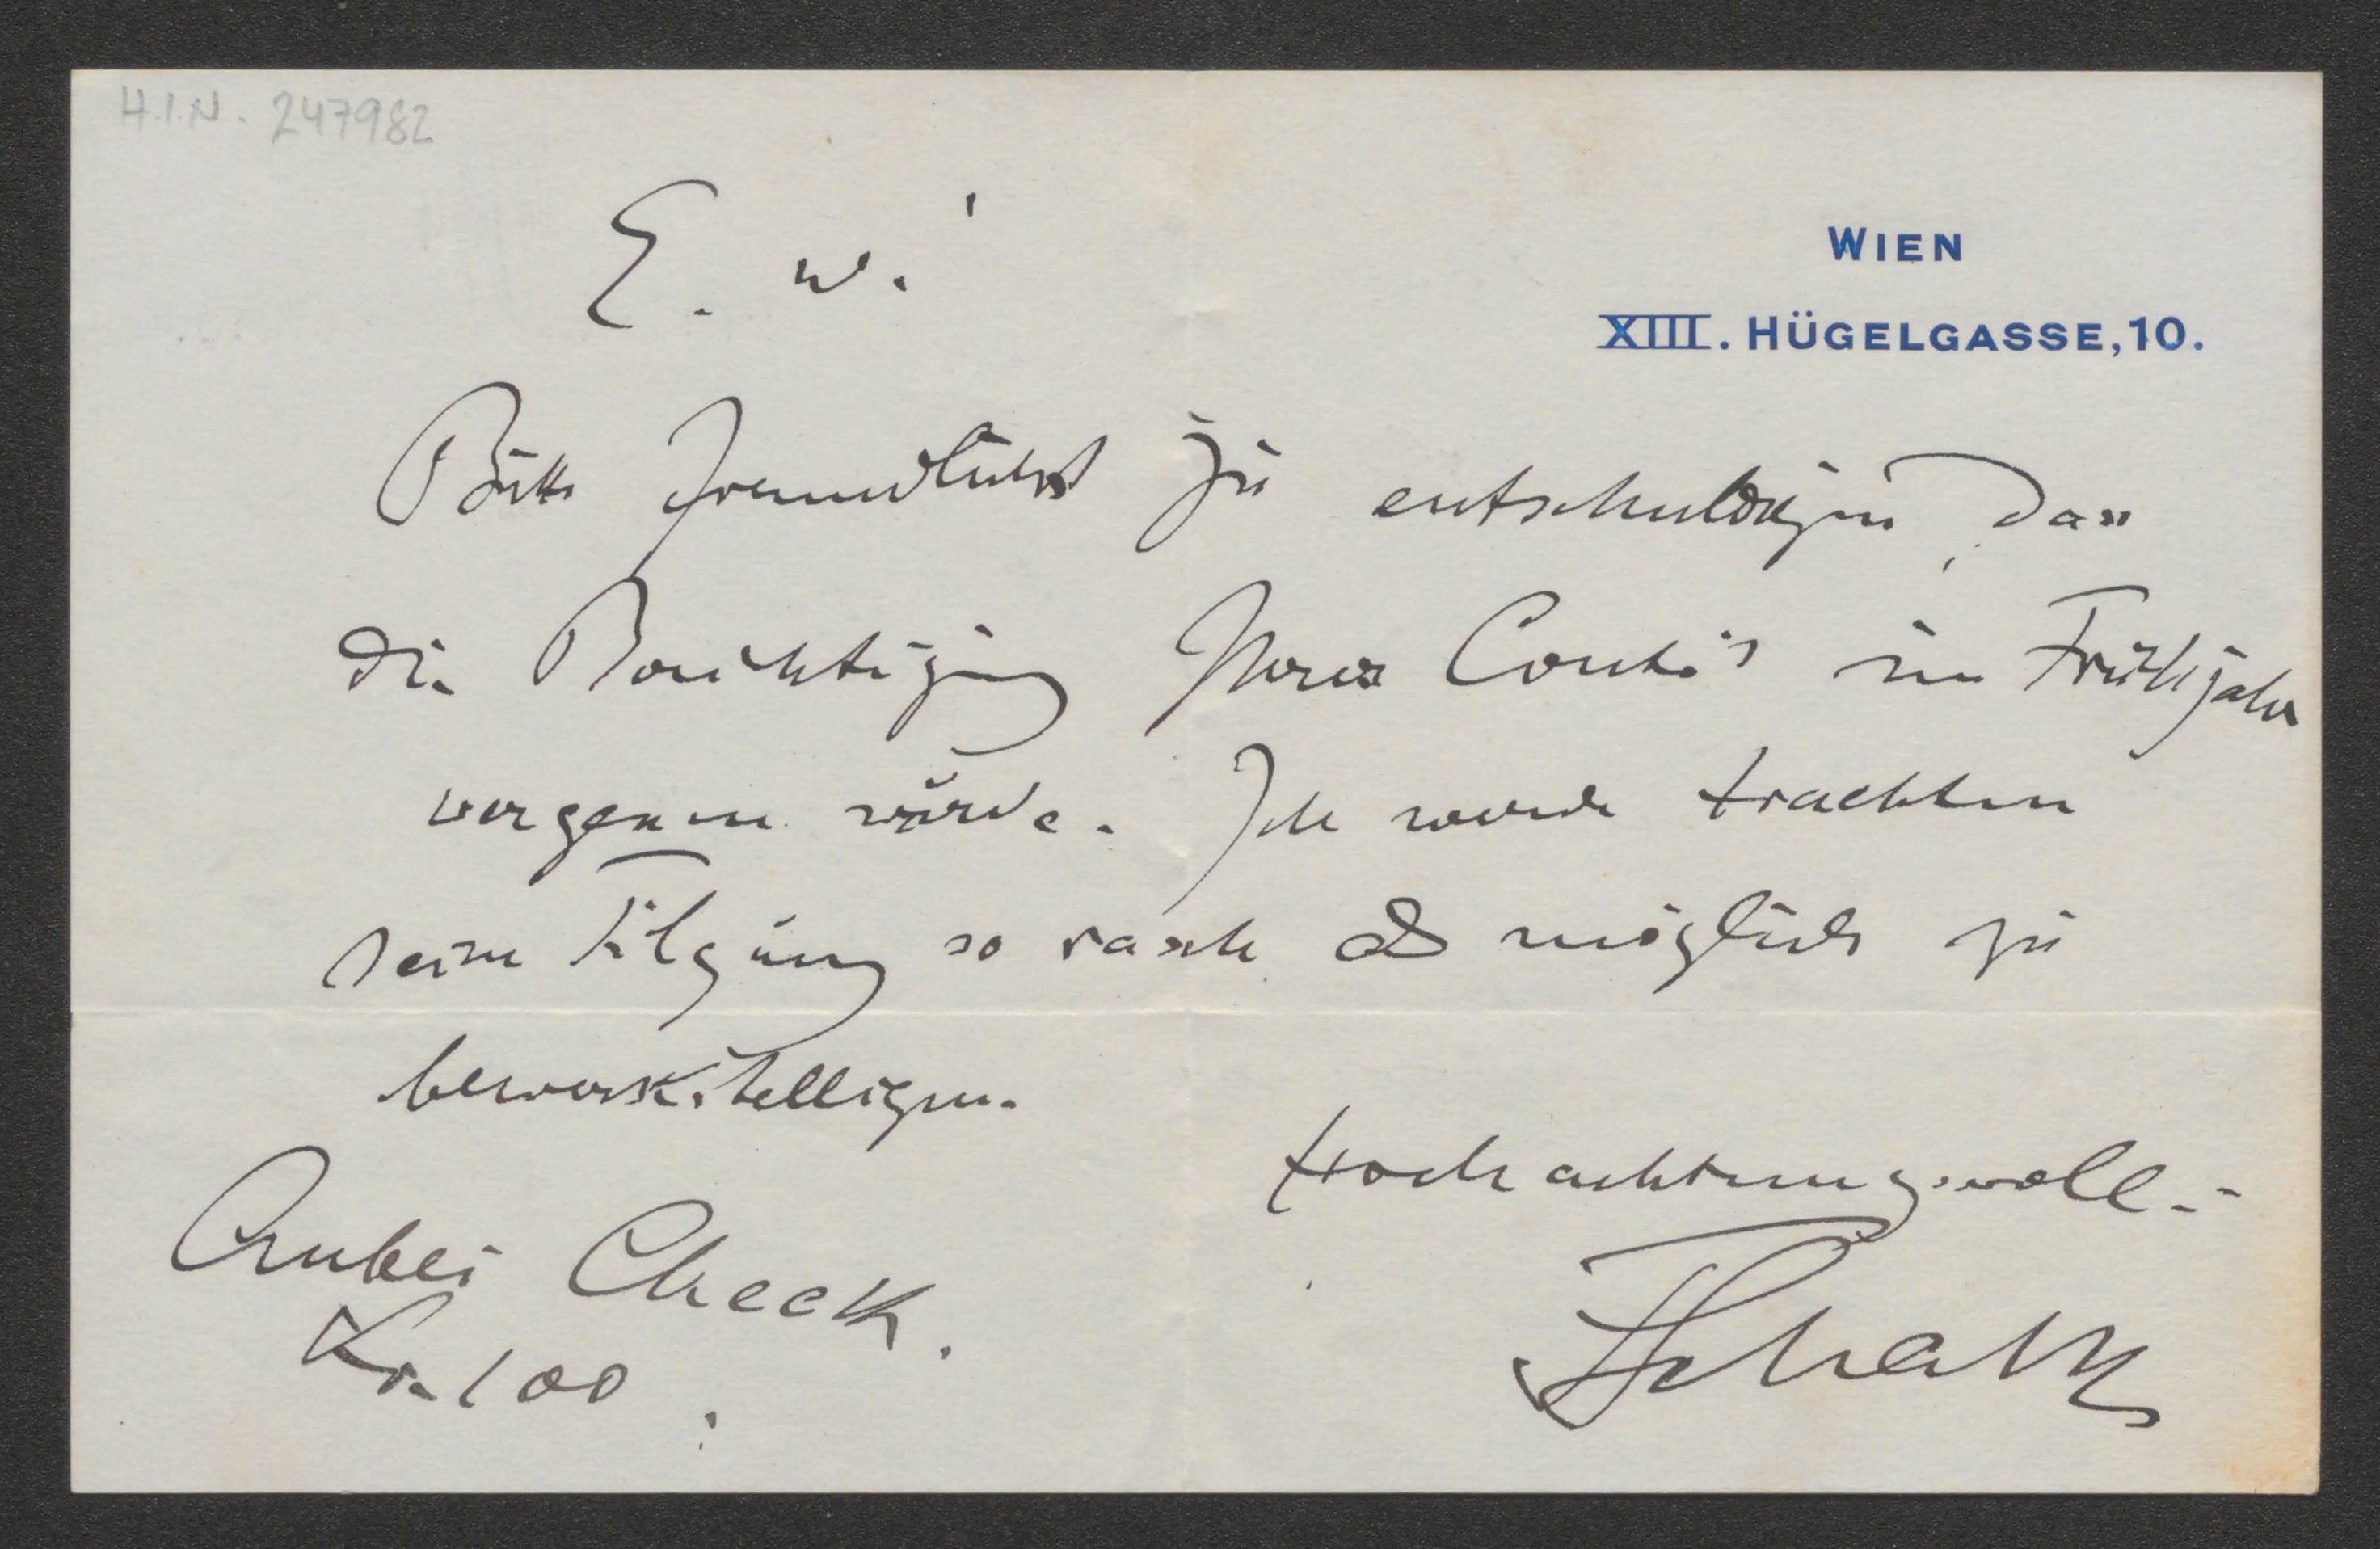 H.I.N. 247982
E. W.!
WIEN
XIII. HÜGELGASSE, 10.
Bitte freundlichst zu entschuldigen, dass
die Berichtigung Ihres Conto's im Frühjahr
vergessen wurde. Ich werde trachten
seine Tilgung so rasch als möglich zu
bewerkstelligen.
Hochachtungsvoll
Anbei Check.
Kr. 100